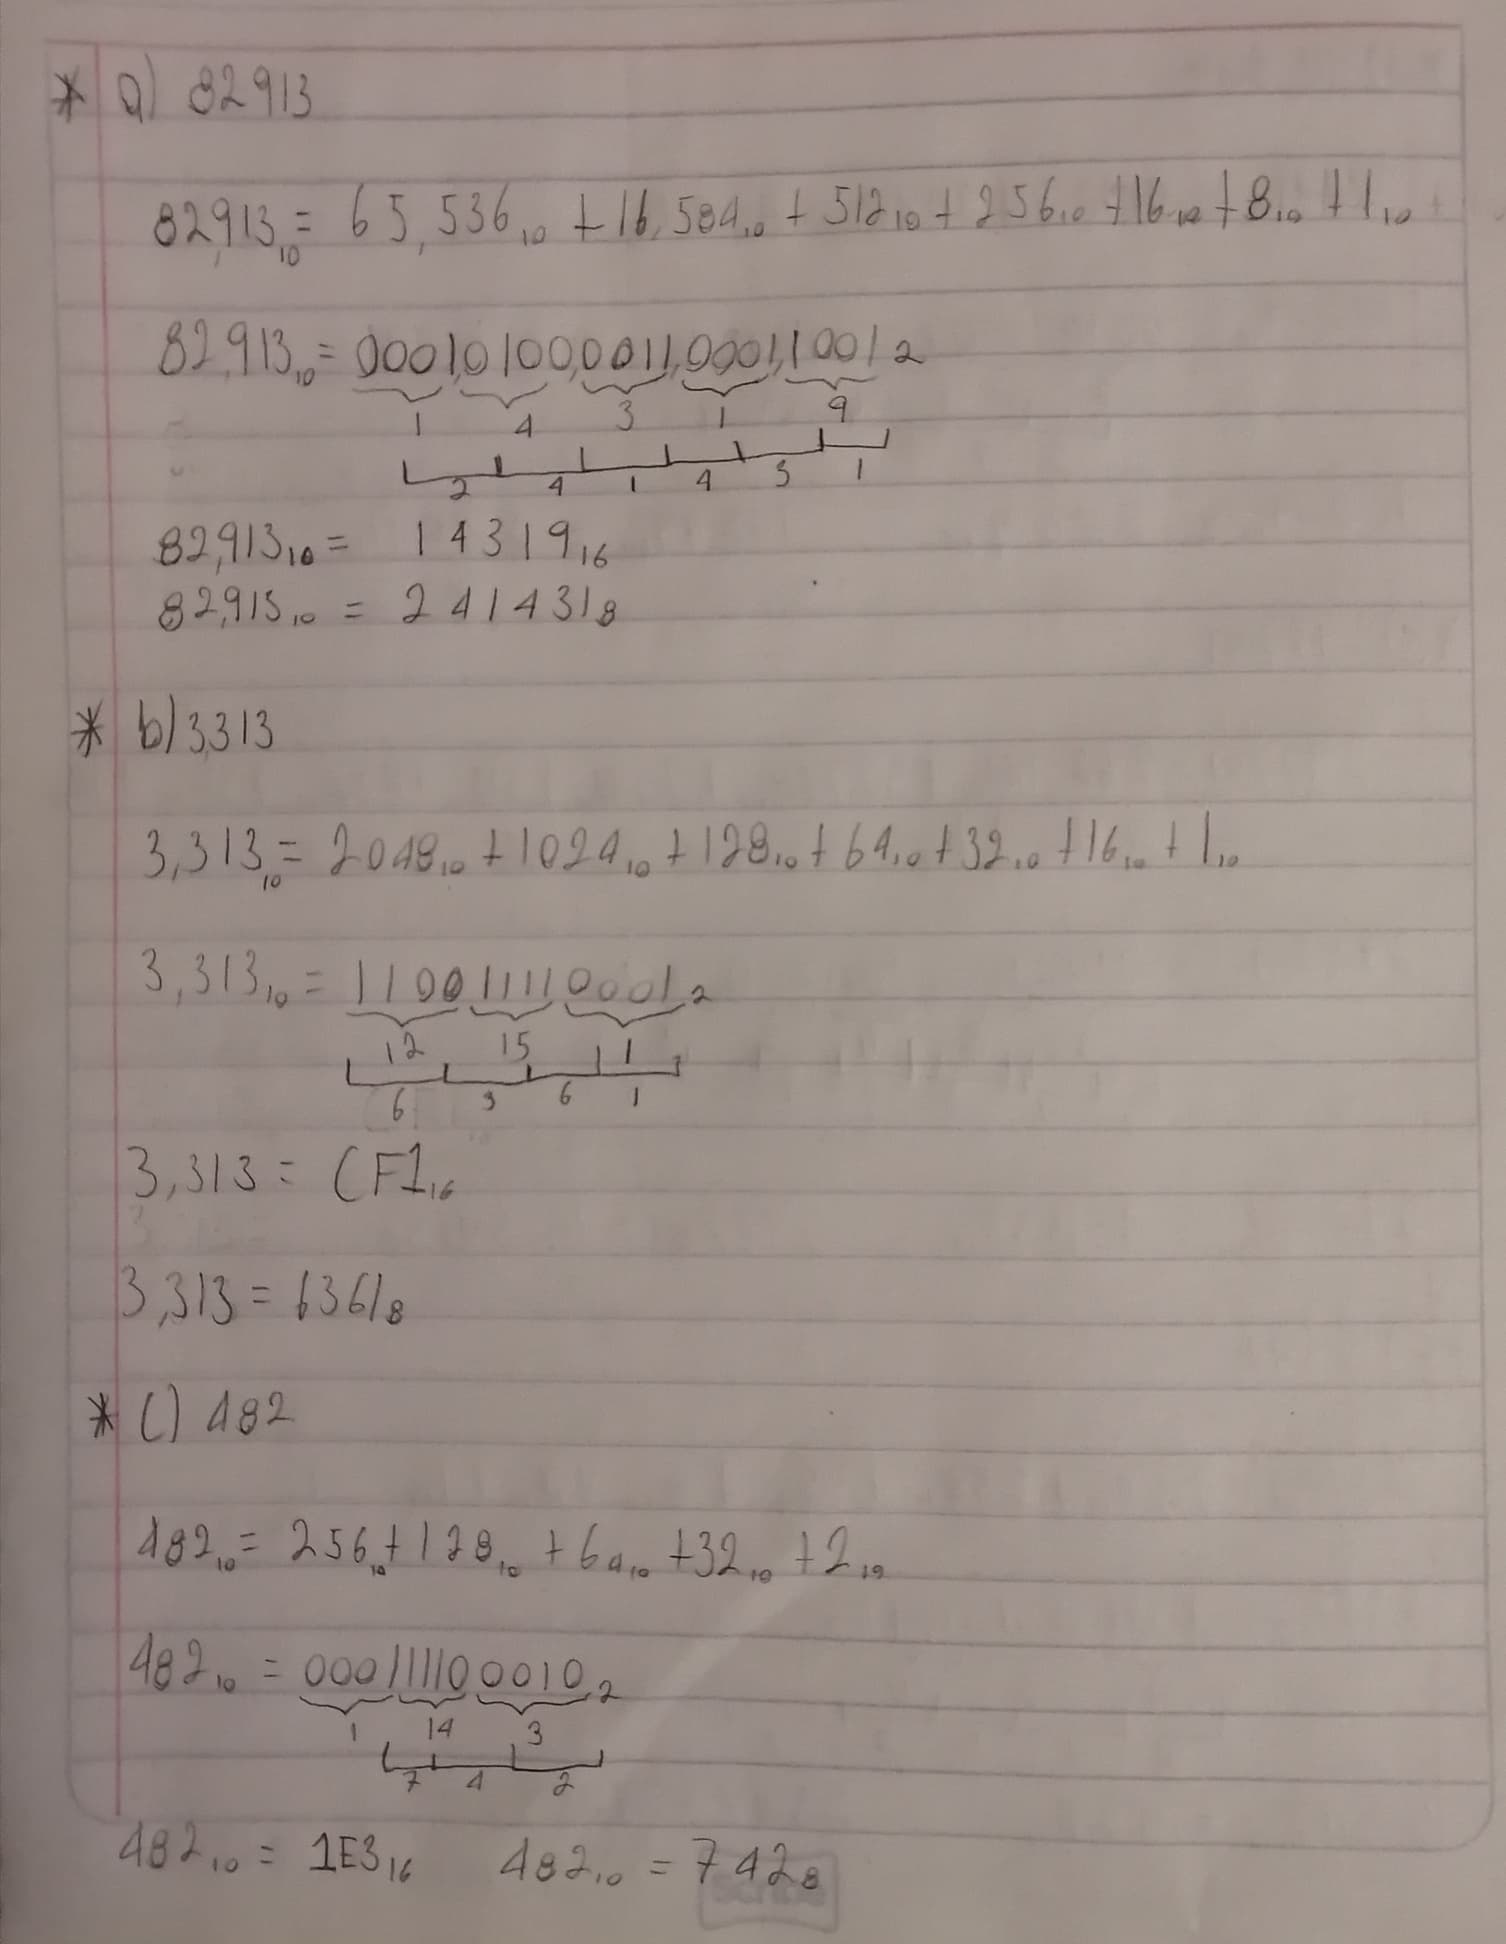 * a) 82913
82,913₁₀ = 65,536₁₀ + 16,584₁₀ + 512₁₀ + 256₁₀ + 16₁₀ + 8₁₀ + 1₁₀
82,913₁₀ = 0001,0100,0011,0001,1001₂
1 4 3 1 9
2 4 1 4 3 1
82,913₁₀ = 14319₁₆
82,913₁₀ = 241431₈
* b) 3,313
3,313₁₀ = 2048₁₀ + 1024₁₀ + 128₁₀ + 64₁₀ + 32₁₀ + 16₁₀ + 1₁₀
3,313₁₀ = 110011110001₂
12 15 1
6 3 6 1
3,313 = CF1₁₆
3,313 = 6361₈
* c) 482
482₁₀ = 256₁₀ + 128₁₀ + 64₁₀ + 32₁₀ + 2₁₀
482₁₀ = 000111100010₂
1 14 3
7 4 2
482₁₀ = 1E3₁₆ 482₁₀ = 742₈
scribe